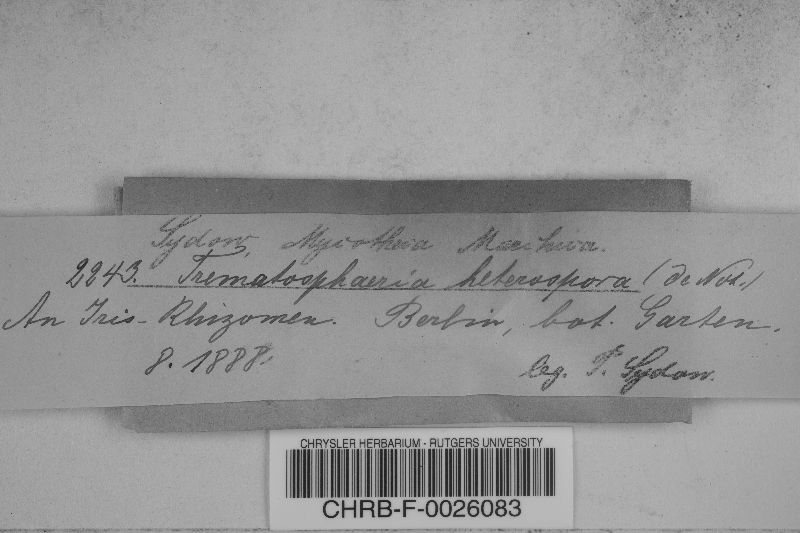 Sydow, Mycotheca Marchica.
2243. Trematosphaeria heterospora (de Not.)
An Iris-Rhizomen. Berlin, bot. Garten.
8. 1888. leg. P. Sydow.
CHRYSLER HERBARIUM - RUTGERS UNIVERSITY
CHRB-F-0026083